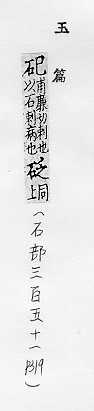 玉篇
甫廉切刺也
以石刺病也
砭
同上
(石部三百五十一 P319)